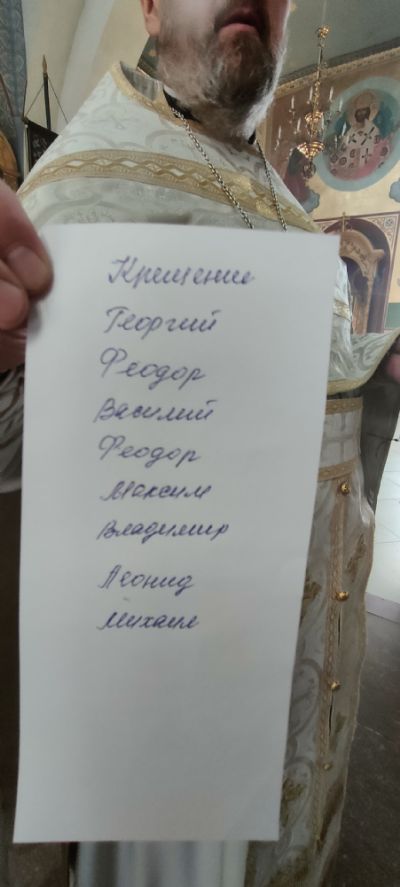 Крещение
Георгий
Феодор
Василий
Феодор
Максим
Владимир
Леонид
Михаил